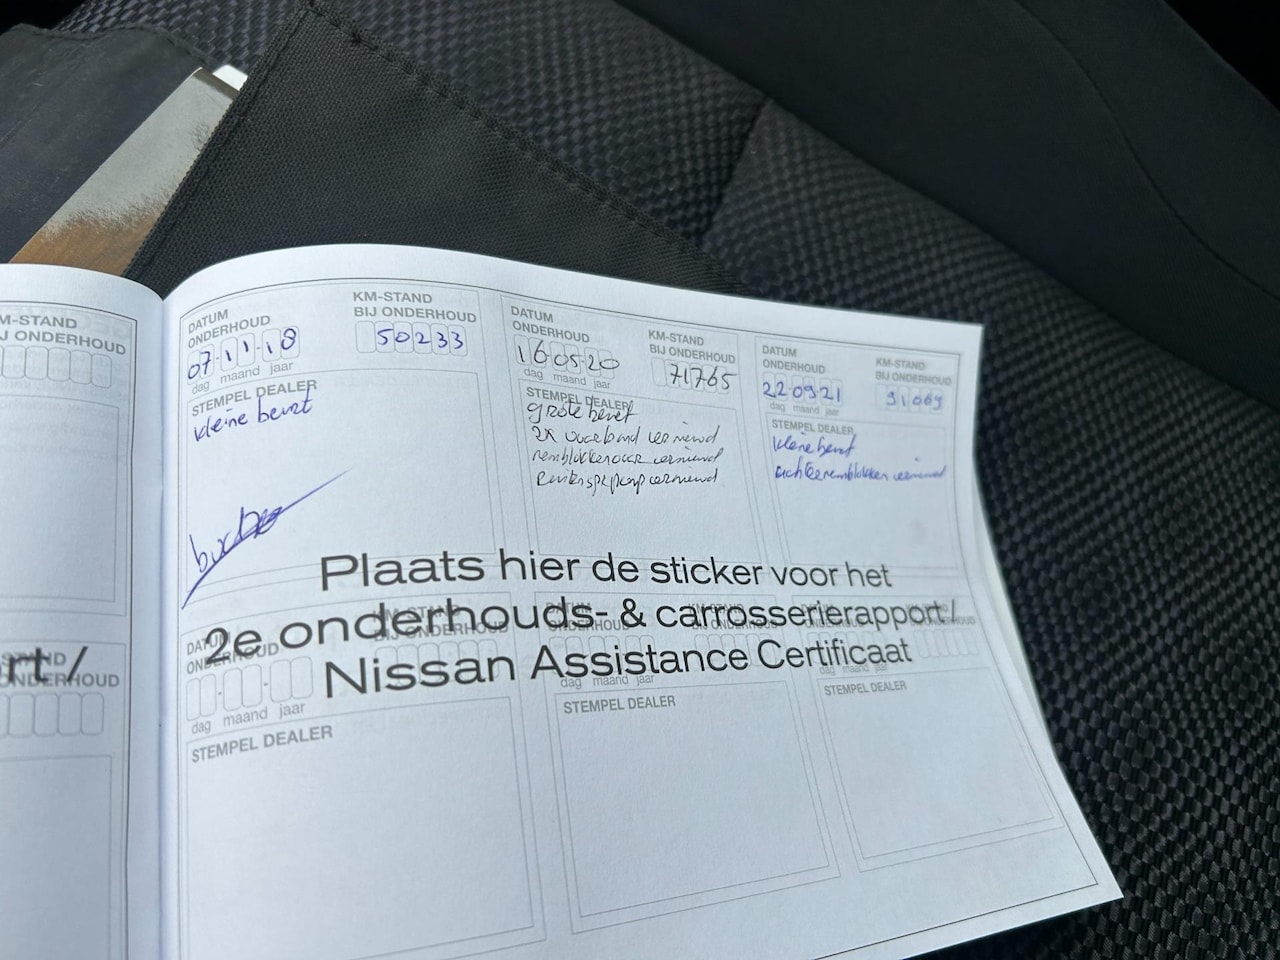 M-STAND
J ONDERHOUD
rt /
ND
ONDERHOUD
DATUM
ONDERHOUD
07-11-18
dag maand jaar
KM-STAND
BIJ ONDERHOUD
50233
STEMPEL DEALER
kleine beurt
DATUM
ONDERHOUD
16 05 20
dag maand jaar
KM-STAND
BIJ ONDERHOUD
71765
STEMPEL DEALER
grote beurt
2x voorband vernieuwd
remblokken voor vernieuwd
vernieuwd
DATUM
ONDERHOUD
22 09 21
dag maand jaar
KM-STAND
BIJ ONDERHOUD
91069
STEMPEL DEALER
kleine beurt
achterremblokken vernieuwd
Plaats hier de sticker voor het
2e onderhouds- & carrosserierapport /
Nissan Assistance Certificaat
DATUM
ONDERHOUD
KM-STAND
BIJ ONDERHOUD
dag maand jaar
STEMPEL DEALER
ONDERHOUD
BIJ ONDERHOUD
dag maand jaar
STEMPEL DEALER
STEMPEL DEALER